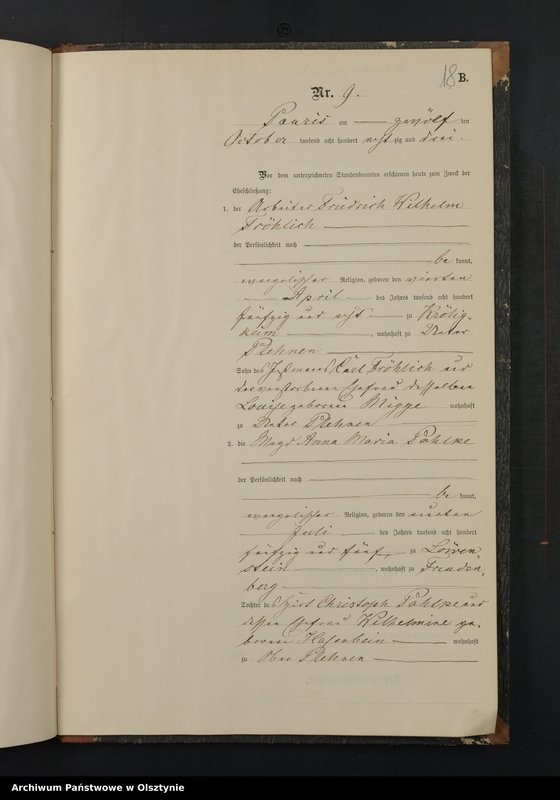 18 B.
Nr. 9.
Paaris am zwölf ten
October tausend acht hundert acht zig und drei.
Vor dem unterzeichneten Standesbeamten erschienen heute zum Zweck der
Eheschließung:
1. der Arbeiter Friedrich Wilhelm
Fröhlich
der Persönlichkeit nach
be kannt,
evangelischer Religion, geboren den vierten
April des Jahres tausend acht hundert
fünfzig und acht zu Krölig-
keim, wohnhaft zu Unter
Plehnen
Sohn des Instmanns Carl Fröhlich und
der verstorbenen Ehefrau desselben
Louise geborenen Migge wohnhaft
zu Unter Plehnen
2. die Magd Anna Maria Pahlke
der Persönlichkeit nach
be kannt,
evangelischer Religion, geboren den
Juli des Jahres tausend acht hundert
fünfzig und fünf, zu Löwen-
stein, wohnhaft zu Freuden-
berg
Tochter des Hirt Christoph Pahlke und
dessen Ehefrau Wilhelmine ge-
borenen Hasenbein wohnhaft
zu Ober Plehnen
Archiwum Państwowe w Olsztynie